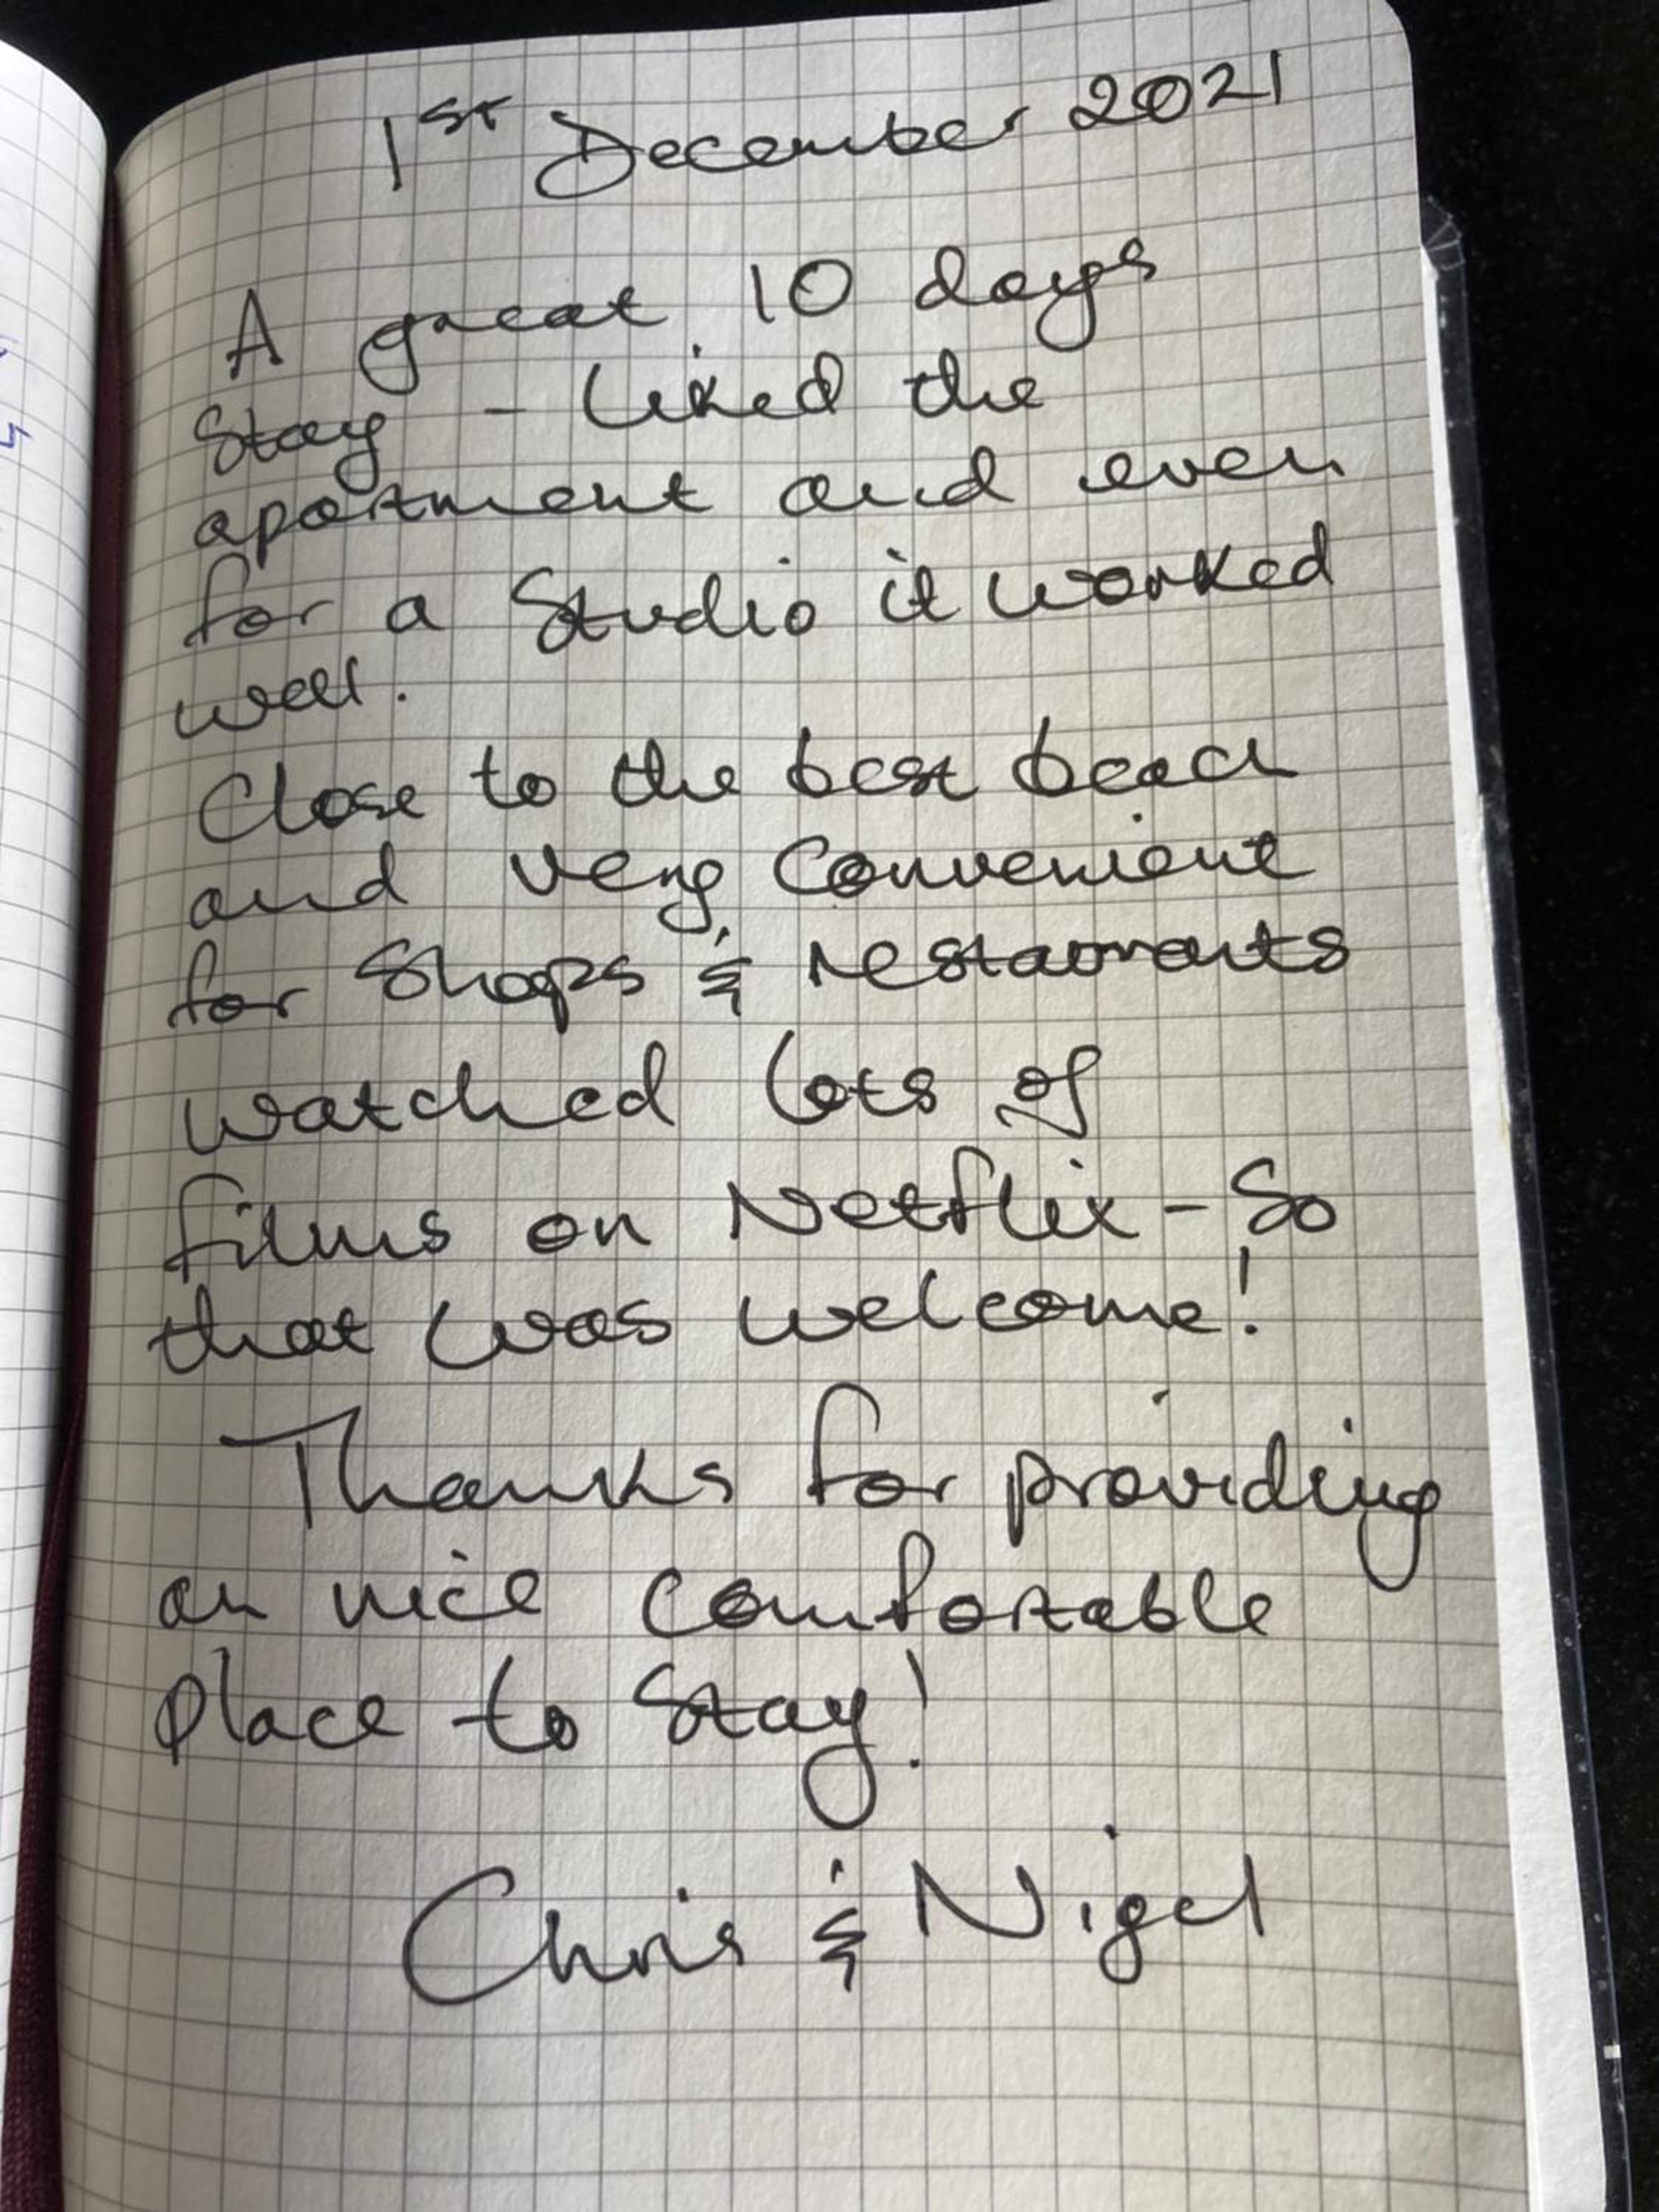 1st December 2021
A great 10 days
Stay - liked the
apartment and even
for a Studio it worked
well.
Close to the best beach
and very convenient
for Shops & restaurants
watched lots of
films on Netflix - So
that was welcome!
Thanks for providing
an nice comfortable
place to Stay!
Chris & Nigel